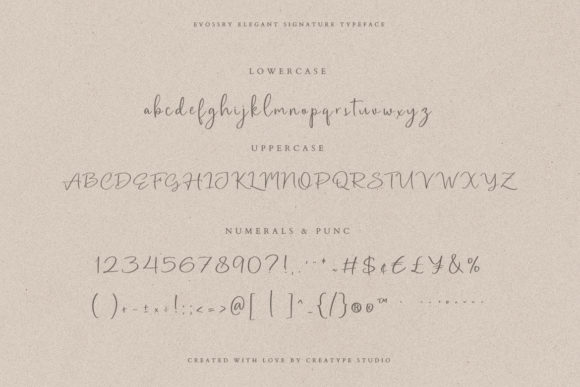 EVOSSRY ELEGANT SIGNATURE TYPEFACE
LOWERCASE
abcdefghijklmnopqrstuvwxyz
UPPERCASE
ABCDEFGHIJKLMNOPQRSTUVWXYZ
NUMERALS & PUNC
1234567890?!,.'"*~#$¢€£¥&%
()+-±×÷!:;<=>@[|]^_{/}®©™
CREATED WITH LOVE BY CREATYPE STUDIO